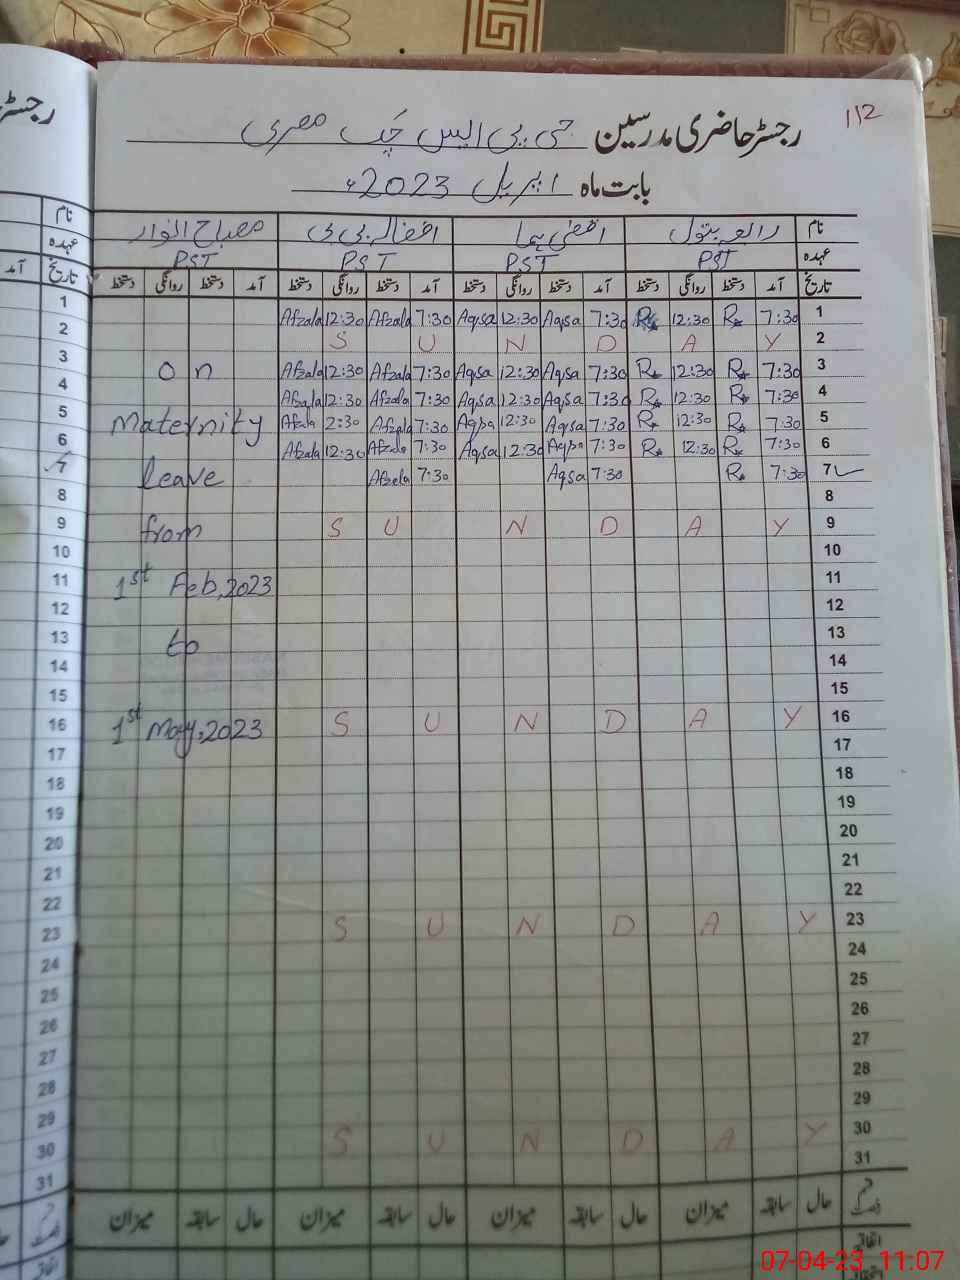 112
رجسٹر حاضری مدرسین جی پی ایس چک مصری
بابت ماہ اپریل 2023ء
نام رابعہ بتول اقصیٰ ہما افضالہ بی بی مصباح انوار
عہدہ PST PST PST PST
تاریخ آمد دستخط روانگی دستخط آمد دستخط روانگی دستخط آمد دستخط روانگی دستخط آمد دستخط روانگی دستخط
Afzala 12:30 Afzala 7:30 Aqsa 12:30 Aqsa 7:30 R 12:30 R 7:30 1
S U N D A Y 2
on Afzala 12:30 Afzala 7:30 Aqsa 12:30 Aqsa 7:30 R 12:30 R 7:30 3
Afzala 12:30 Afzala 7:30 Aqsa 12:30 Aqsa 7:30 R 12:30 R 7:30 4
Maternity Afzala 2:30 Afzala 7:30 Aqsa 12:30 Aqsa 7:30 R 12:30 R 7:30 5
Afzala 12:30 Afzala 7:30 Aqsa 12:30 Aqsa 7:30 R 12:30 R 7:30 6
leave Afzala 7:30 Aqsa 7:30 R 7:30 7
8
from S U N D A Y 9
10
1st Feb,2023 11
12
to 13
14
15
1st May,2023 S U N D A Y 16
17
18
19
20
21
22
S U N D A Y 23
24
25
26
27
28
29
S U N D A Y 30
31
حال سابقہ میزان حال سابقہ میزان حال سابقہ میزان حال سابقہ میزان
اتفاقیہ
رجسٹر
نام
عہدہ
تاریخ آمد
1
2
3
4
5
6
7
8
9
10
11
12
13
14
15
16
17
18
19
20
21
22
23
24
25
26
27
28
29
30
31
07-04-23 11:07